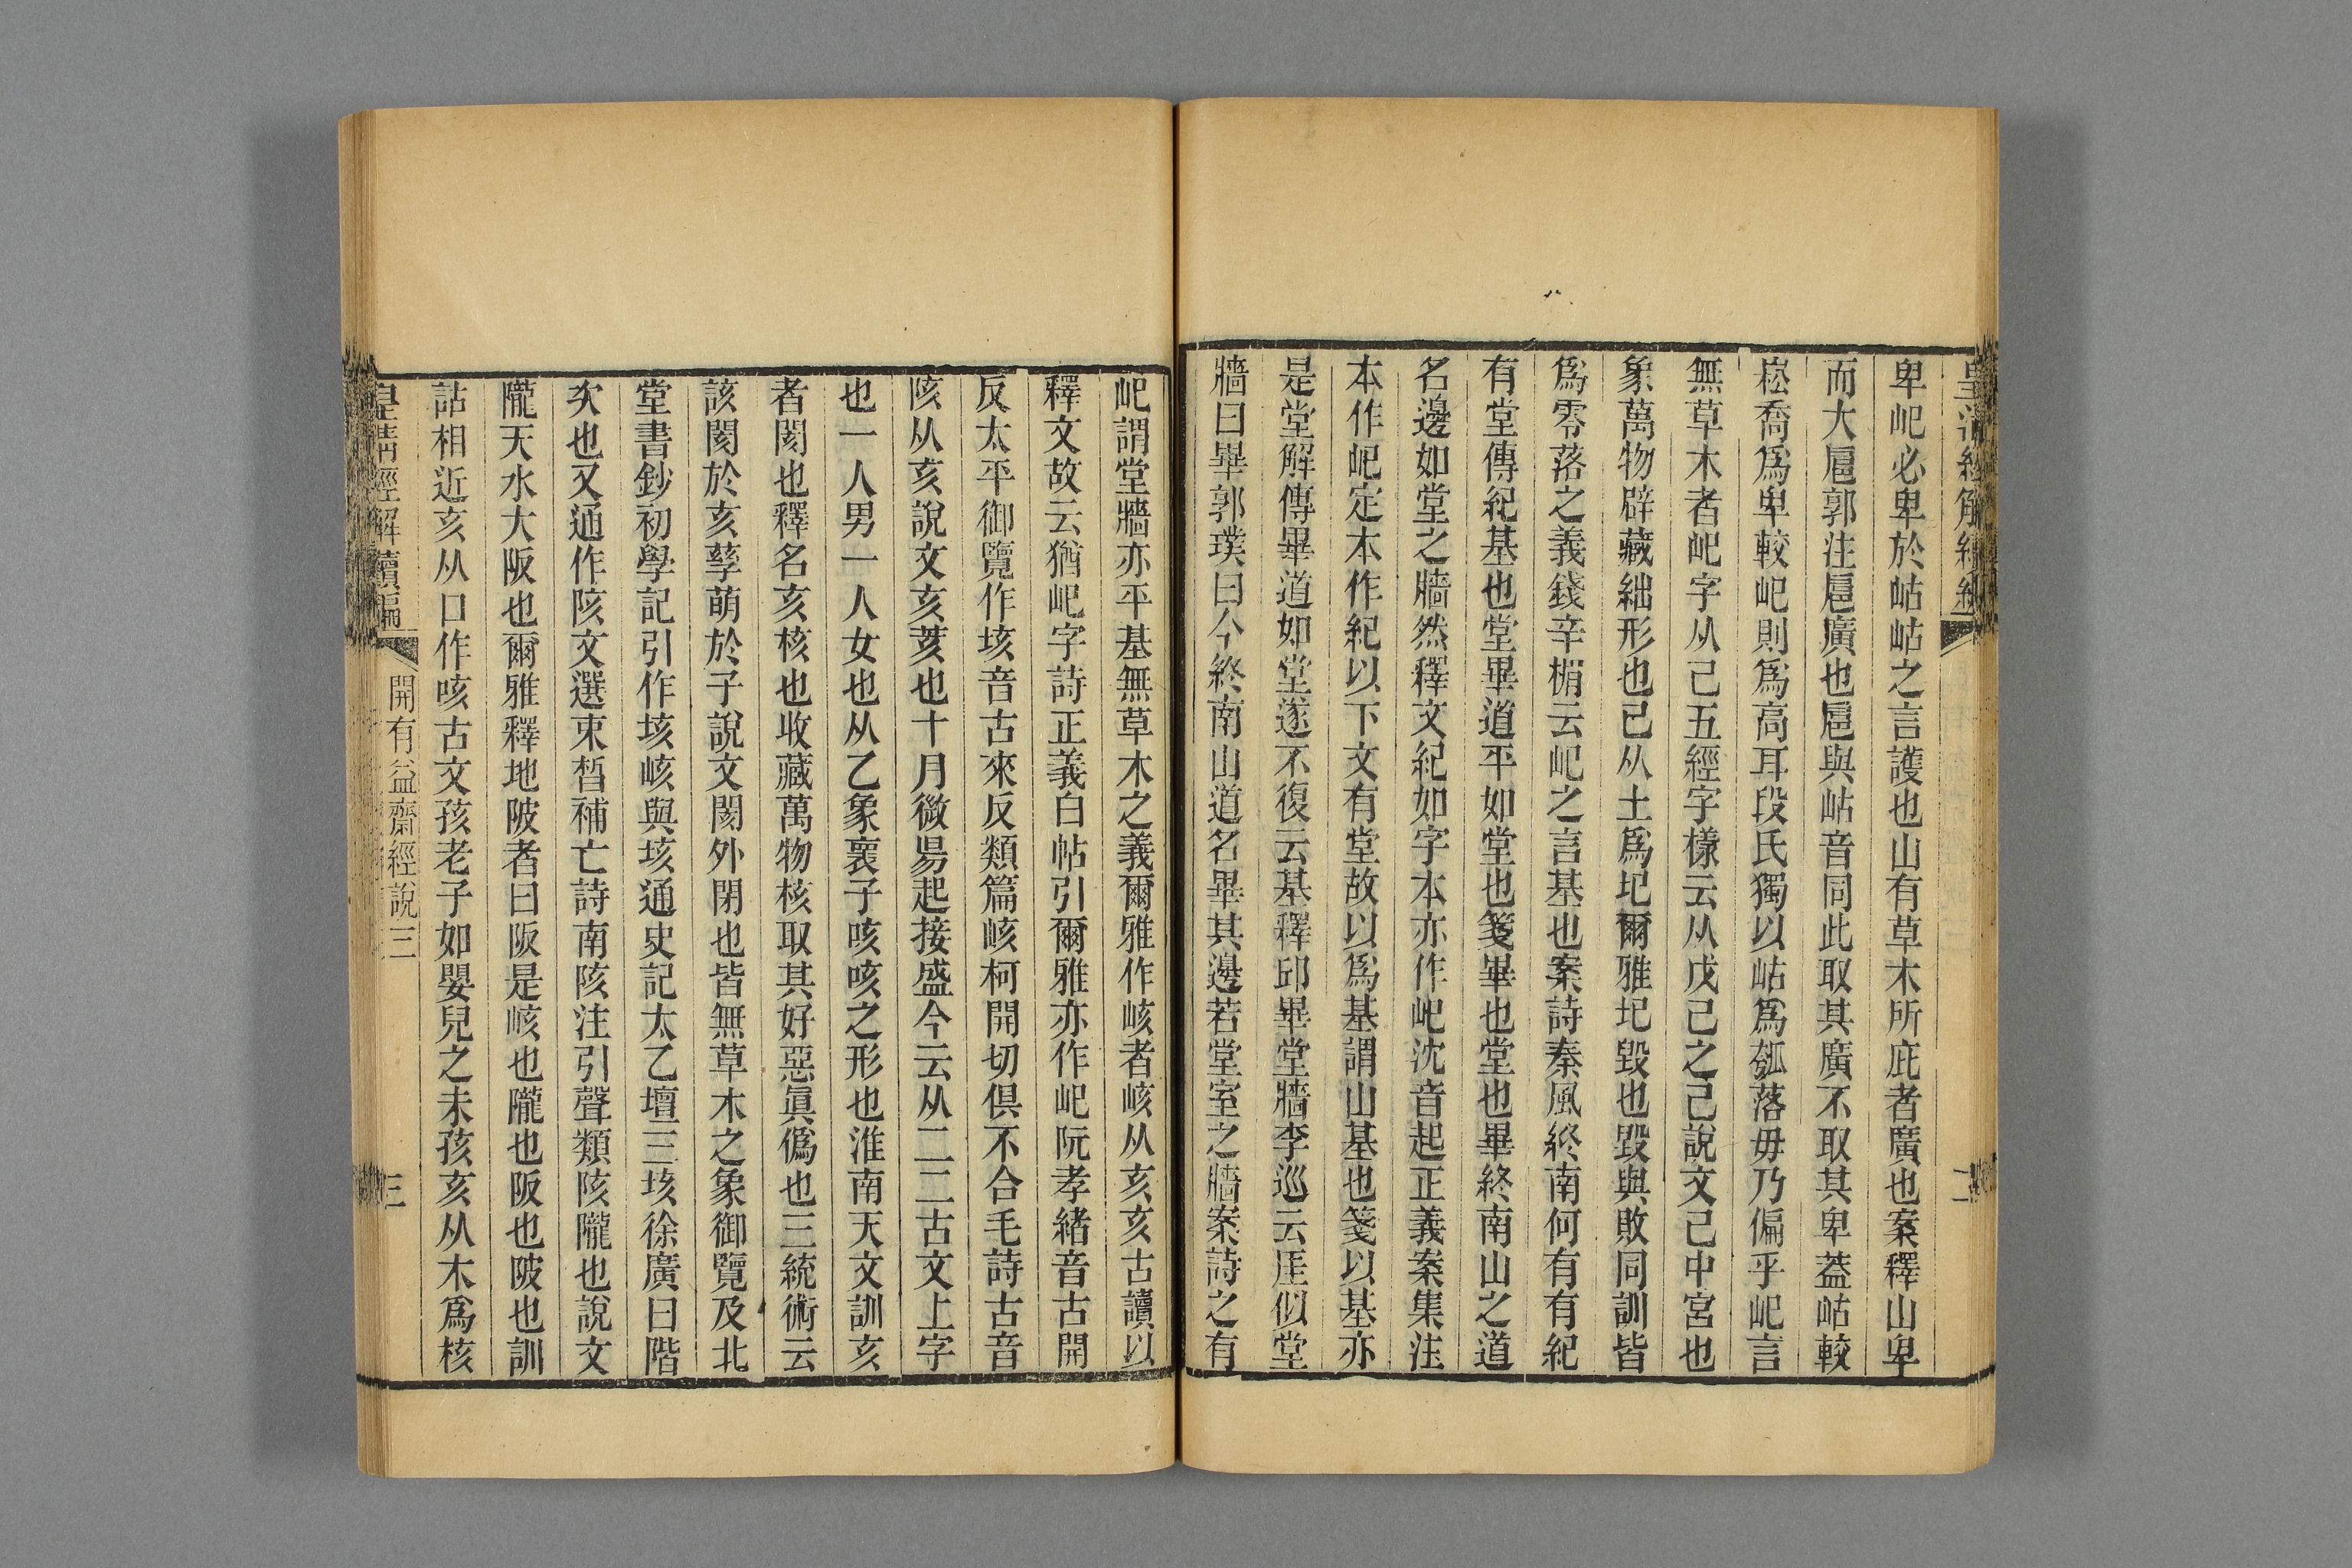 卑屺必卑於岵岵之言護也山有草木所庇者廣也案釋山卑
而大扈郭注扈廣也扈與岵音同此取其廣不取其卑蓋岵較
崧喬爲卑較屺則爲高耳段氏獨以岵爲瓠落毋乃偏乎屺言
無草木者屺字从己五經字樣云从戊己之己說文己中宮也
象萬物辟藏絀形也己从土爲圮爾雅圮毀也毀與敗同訓皆
爲零落之義錢辛楣云屺之言基也案詩秦風終南何有有紀
有堂傳紀基也堂畢道平如堂也箋畢也堂也畢終南山之道
名邊如堂之牆然釋文紀如字本亦作屺沈音起正義案集注
本作屺定本作紀以下文有堂故以爲基謂山基也箋以基亦
是堂解傳畢道如堂遂不復云基釋邱畢堂牆李巡云厓似堂
牆曰畢郭璞曰今終南山道名畢其邊若堂室之牆案詩之有
屺謂堂牆亦平基無草木之義爾雅作峐者峐从亥亥古讀以
釋文故云猶屺字詩正義白帖引爾雅亦作屺阮孝緒音古開
反太平御覽作垓音古來反類篇峐柯開切俱不合毛詩古音
陔从亥說文亥荄也十月微昜起接盛今云从二二古文上字
也一人男一人女也从乙象褢子咳咳之形也淮南天文訓亥
者閡也釋名亥核也收藏萬物核取其好惡眞僞也三統術云
該閡於亥孳萌於子說文閡外閉也皆無草木之象御覽及北
堂書鈔初學記引作垓峐與垓通史記太乙壇三垓徐廣曰階
次也又通作陔文選束皙補亡詩南陔注引聲類陔隴也說文
隴天水大阪也爾雅釋地陂者曰阪是峐也隴也阪也陂也訓
詁相近亥从口作咳古文孩老子如嬰兒之未孩亥从木爲核
皇清經解續編
開有益齋經說三
三